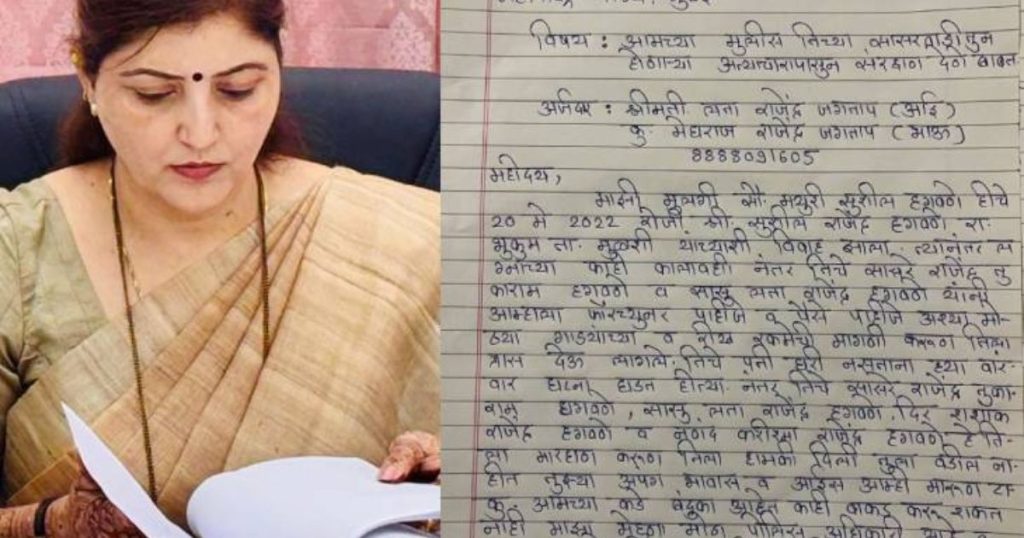 विषय : आमच्या मुलीस तिच्या सासरवाशीतुन
होणाऱ्या अत्याचारापासुन संरक्षण देणे बाबत.
अर्जदार : श्रीमती लता राजेंद्र जगताप (आई)
कु. मेघराज राजेंद्र जगताप (भाऊ)
8888091605
महोदय,
माझी मुलगी सौ. मयुरी सुशील हगवणे हिचे
20 मे 2022 रोजी श्री. सुशील राजेंद्र हगवणे रा.
भुकुम ता. मुळशी याच्याशी विवाह झाला. त्यानंतर ल
ग्नाच्या काही कालावधी नंतर तिचे सासरे राजेंद्र तु
काराम हगवणे व सासू लता राजेंद्र हगवणे यांनी
आम्हाला फॉरच्युनर पाहीजे व पैसे पाहीजे अश्या मो-
ठ्या गाड्यांच्या व रोख रकमेची मागणी करून तिला
त्रास देऊ लागले. तिचे पती घरी नसताना ह्या वारं-
वार घटना घडत होत्या. नंतर तिचे सासरे राजेंद्र तुका-
राम हगवणे, सासु लता राजेंद्र हगवणे, दिर शशांक
राजेंद्र हगवणे व नणंद करीश्मा राजेंद्र हगवणे हे ति-
ला मारहाण करून तिला धमकी दिली तुला वडील ना-
हीत तुझ्या अपंग भावास व आईस आम्ही मारून टा-
कु आमच्या कडे बंदुका आहेत काही वाकडं करू शकत
नाही माझा मेहुणा मोठा पोलिस अधिकारी आहे व